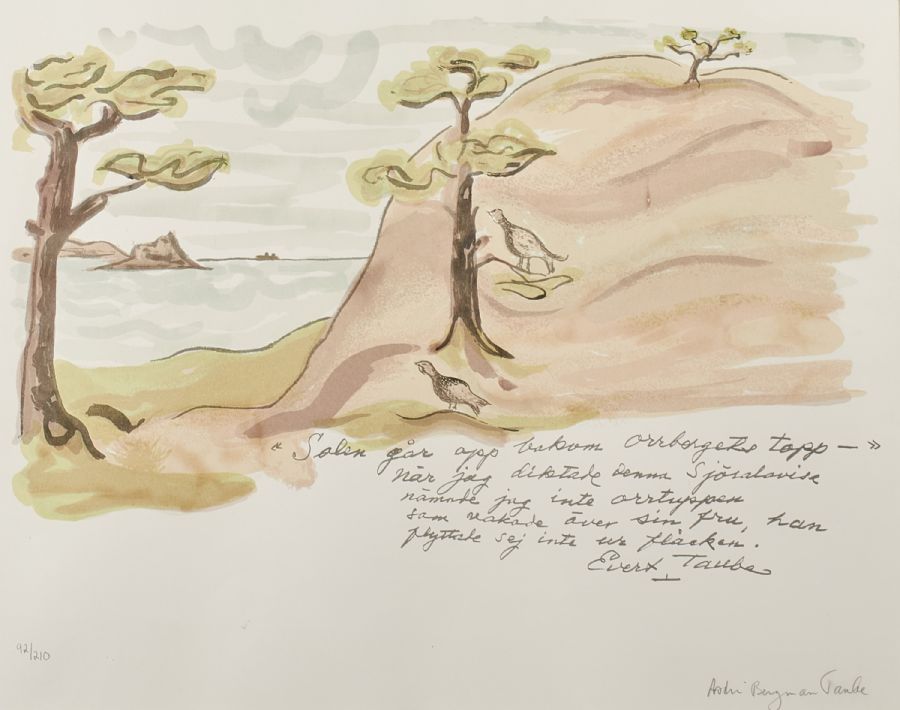 « Solen går opp bakom orrbergets topp — »
När jag diktade denna Sjösalavisa
nämnde jag inte orrtuppen
som vakade över sin fru, han
flyttade sej inte ur fläcken.
Evert Taube
92/210
Astri Bergman Taube